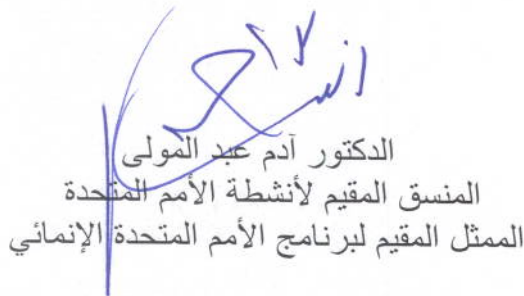 الدكتور آدم عبد المولى
المنسق المقيم لأنشطة الأمم المتحدة
الممثل المقيم لبرنامج الأمم المتحدة الإنمائي